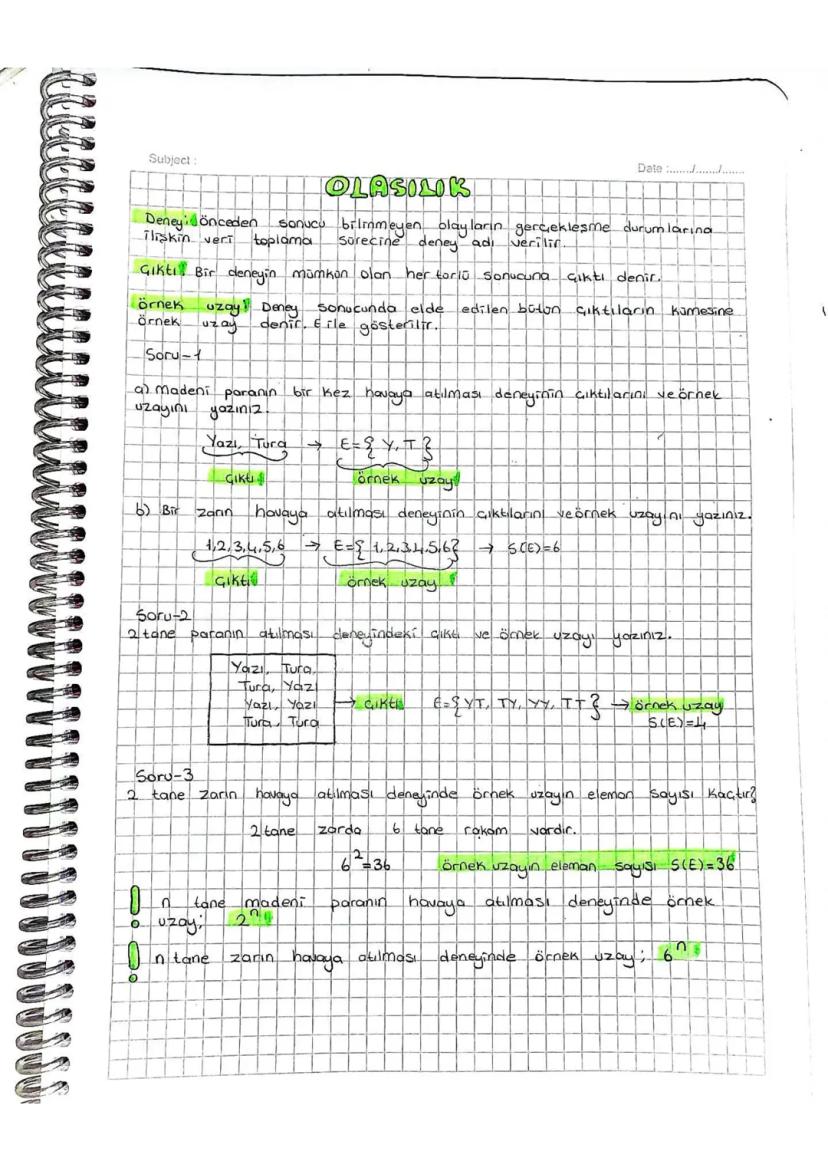 Subject :
Date :....../....../......
OLASILIK
Deney: önceden sonucu bilinmeyen olayların gerçekleşme durumlarına
ilişkin veri toplama sürecine deney adı verilir.
Çıktı: Bir deneyin mümkün olan her türlü sonucuna çıktı denir.
örnek uzay: Deney sonucunda elde edilen bütün çıktıların kümesine
örnek uzay denir. E ile gösterilir.
Soru-1
a) Madeni paranın bir kez havaya atılması deneyinin çıktılarını ve örnek
uzayını yazınız.
Yazı, Tura → E={ Y, T }
Çıktı örnek uzay
b) Bir zarın havaya atılması deneyinin çıktılarını ve örnek uzayını yazınız.
1,2,3,4,5,6 → E={ 1,2,3,4,5,6} → S(E)=6
Çıktı örnek uzay
Soru-2
2 tane paranın atılması deneyindeki çıktı ve örnek uzayı yazınız.
Yazı, Tura,
Tura, Yazı
Yazı, Yazı → Çıktı E={ YT, TY, YY, TT } → örnek uzay
Tura, Tura S(E)=4
Soru-3
2 tane zarın havaya atılması deneyinde örnek uzayın eleman sayısı kaçtır?
2 tane zarda 6 tane rakam vardır.
6²=36 örnek uzayın eleman sayısı S(E)=36
! n tane madeni paranın havaya atılması deneyinde örnek
uzay; 2ⁿ
! n tane zarın havaya atılması deneyinde örnek uzay; 6ⁿ